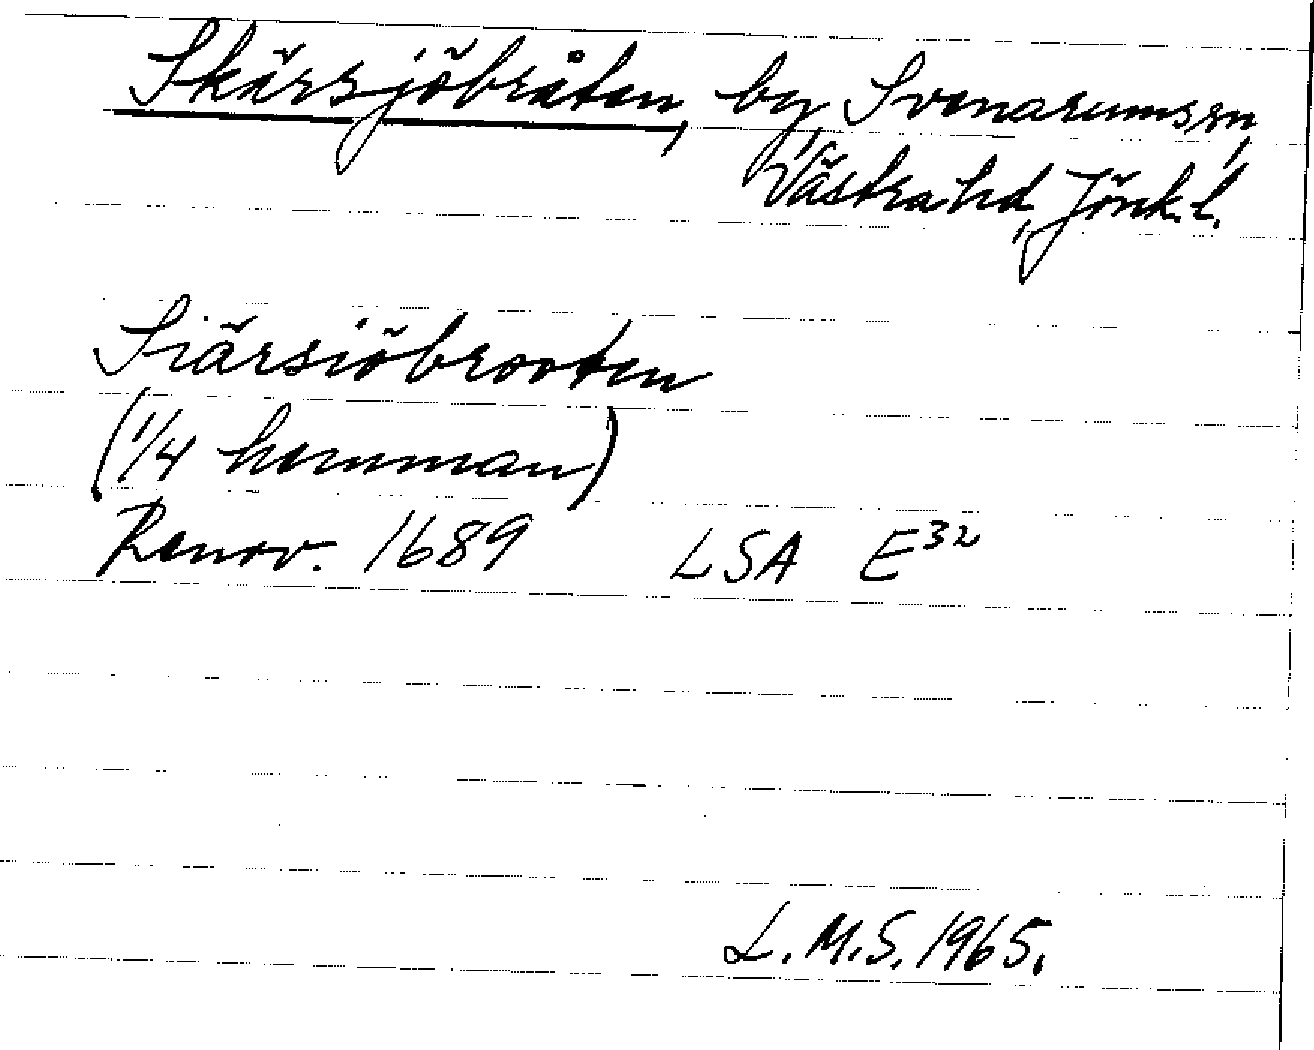 Skärsjöbråten, by Svenarumssn,
Västra hd, Jönk. l.
Siärsiöbrooten
(1/4 hemman)
Renov. 1689 LSA E³²
L.M.S. 1965.